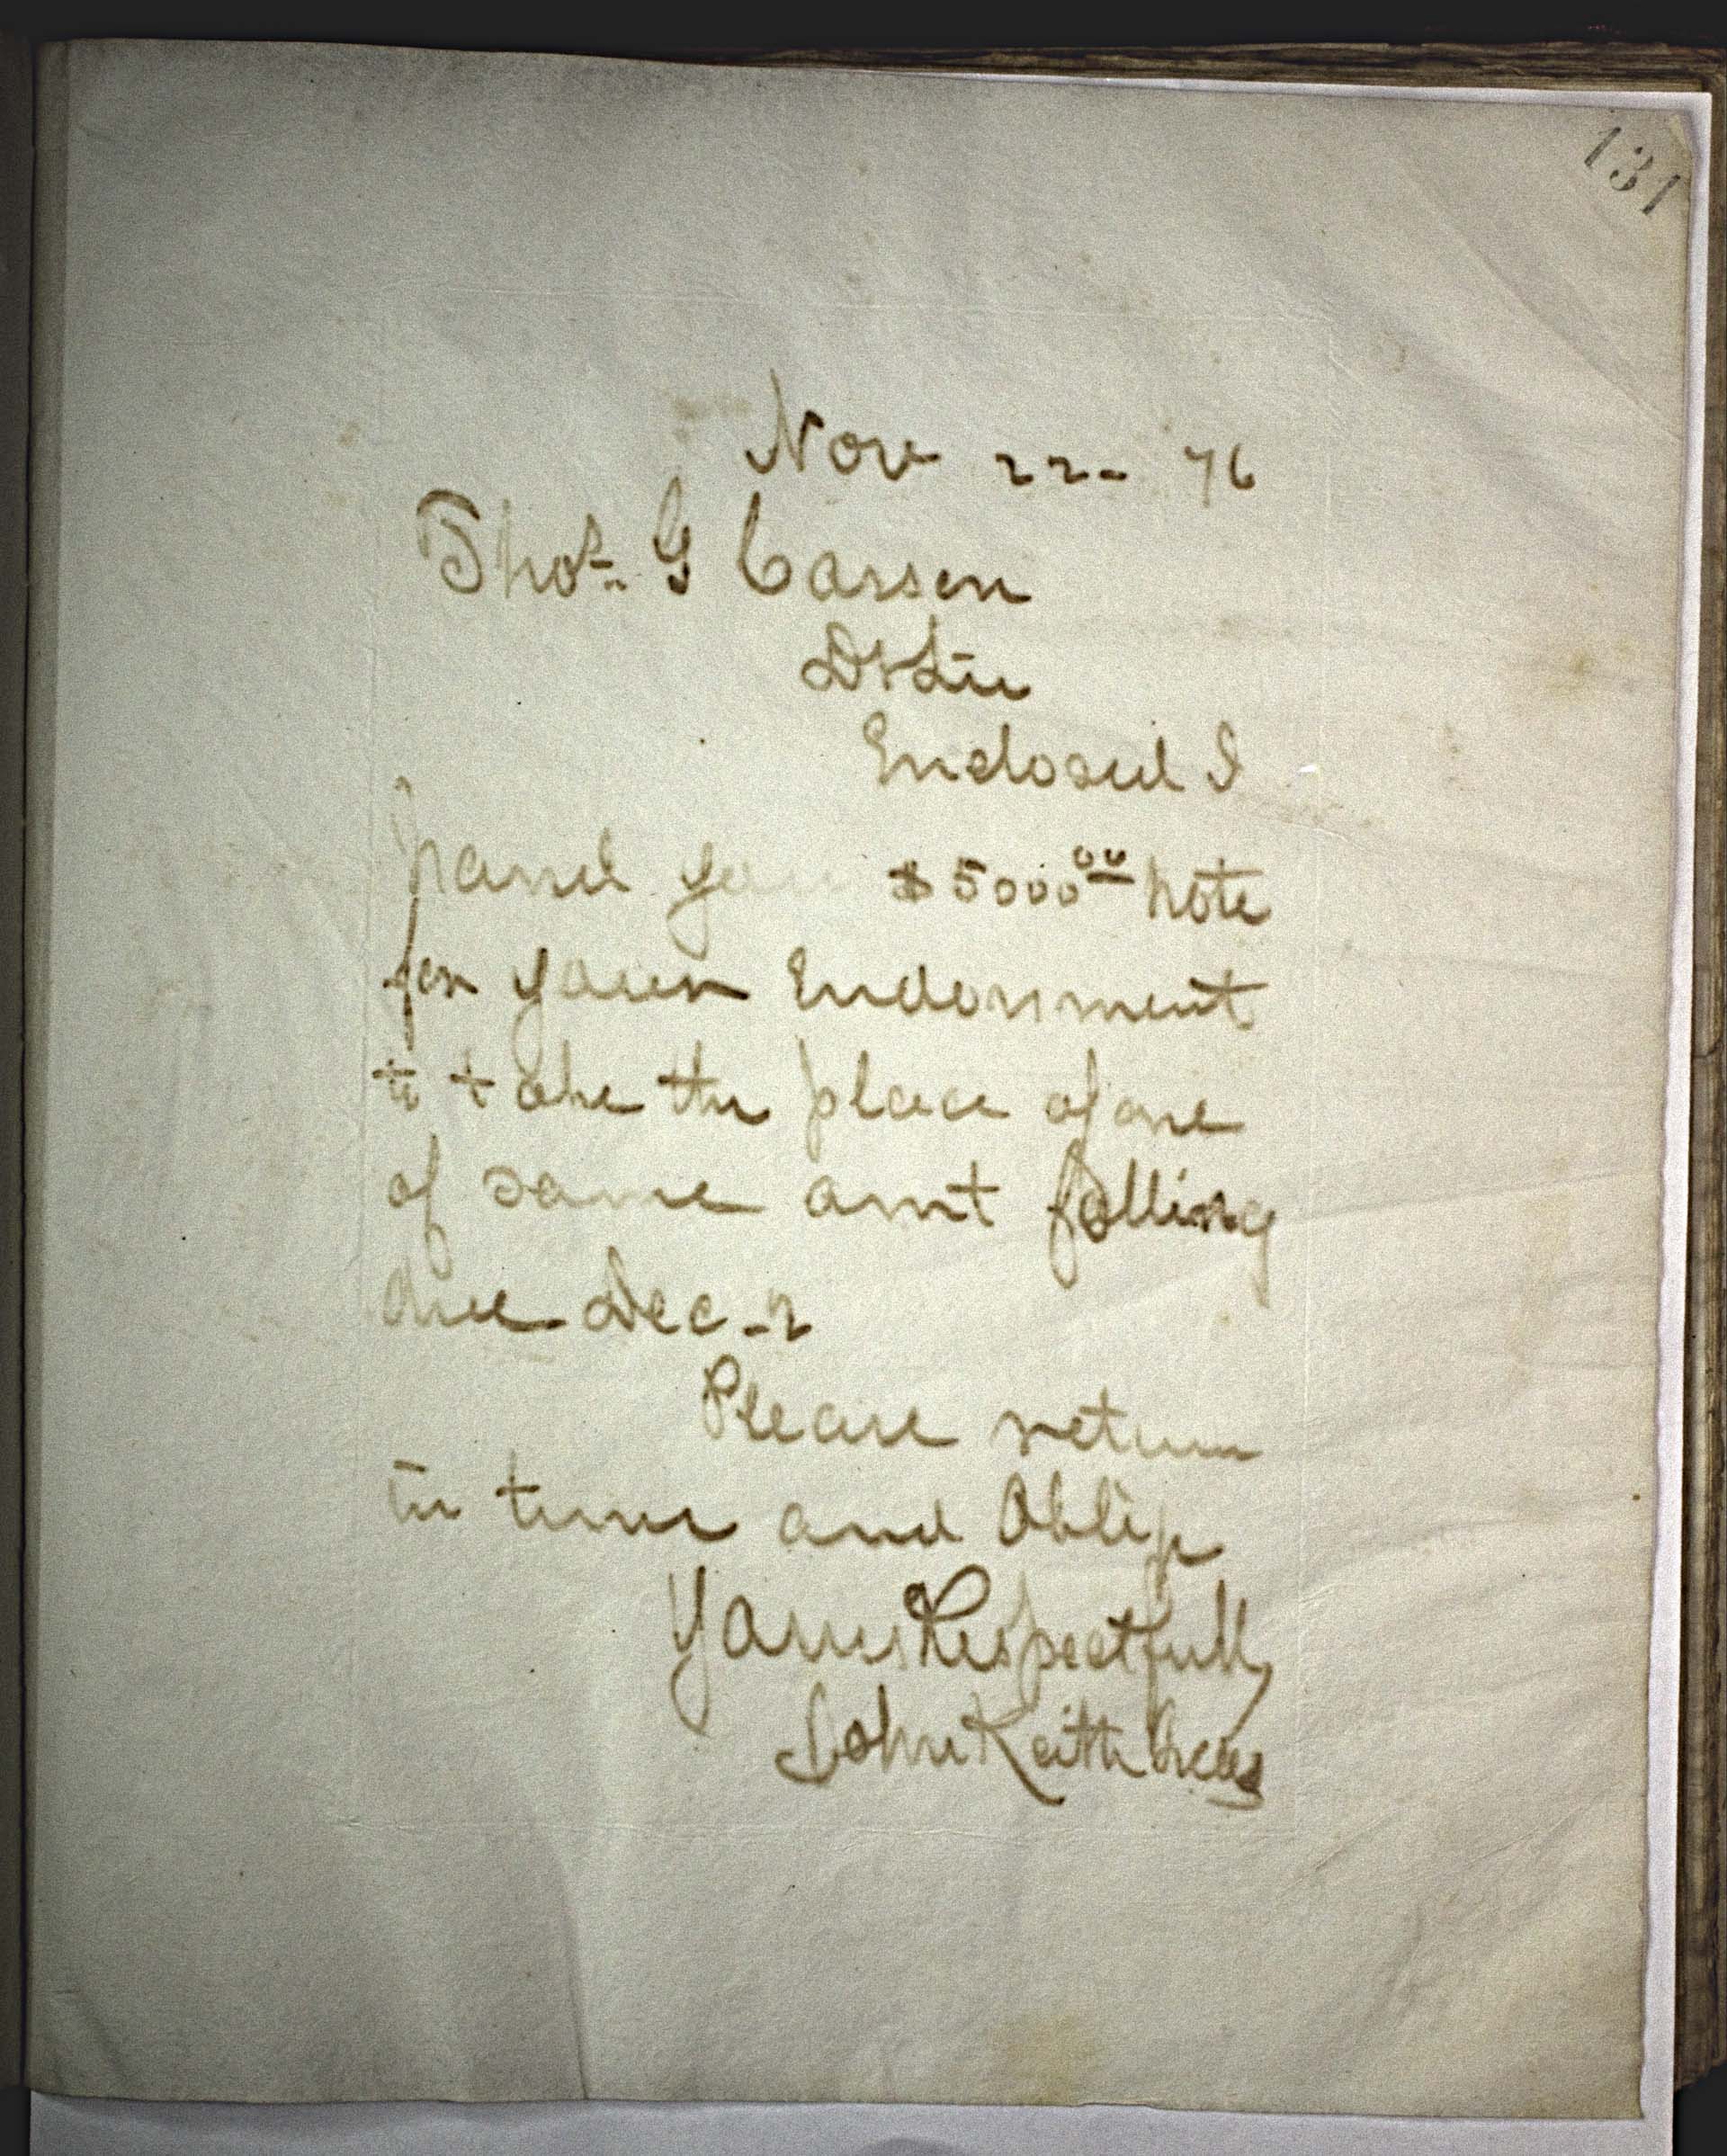 131
Nov 22- 76
Thos. G Carson
Dr Sir
Enclosed I
hand you $5000.00 note
for your Endorsment
to take the place of one
of same amt falling
due Dec -2
Please return
in time and Oblige
Yours Respectfully
John Keith